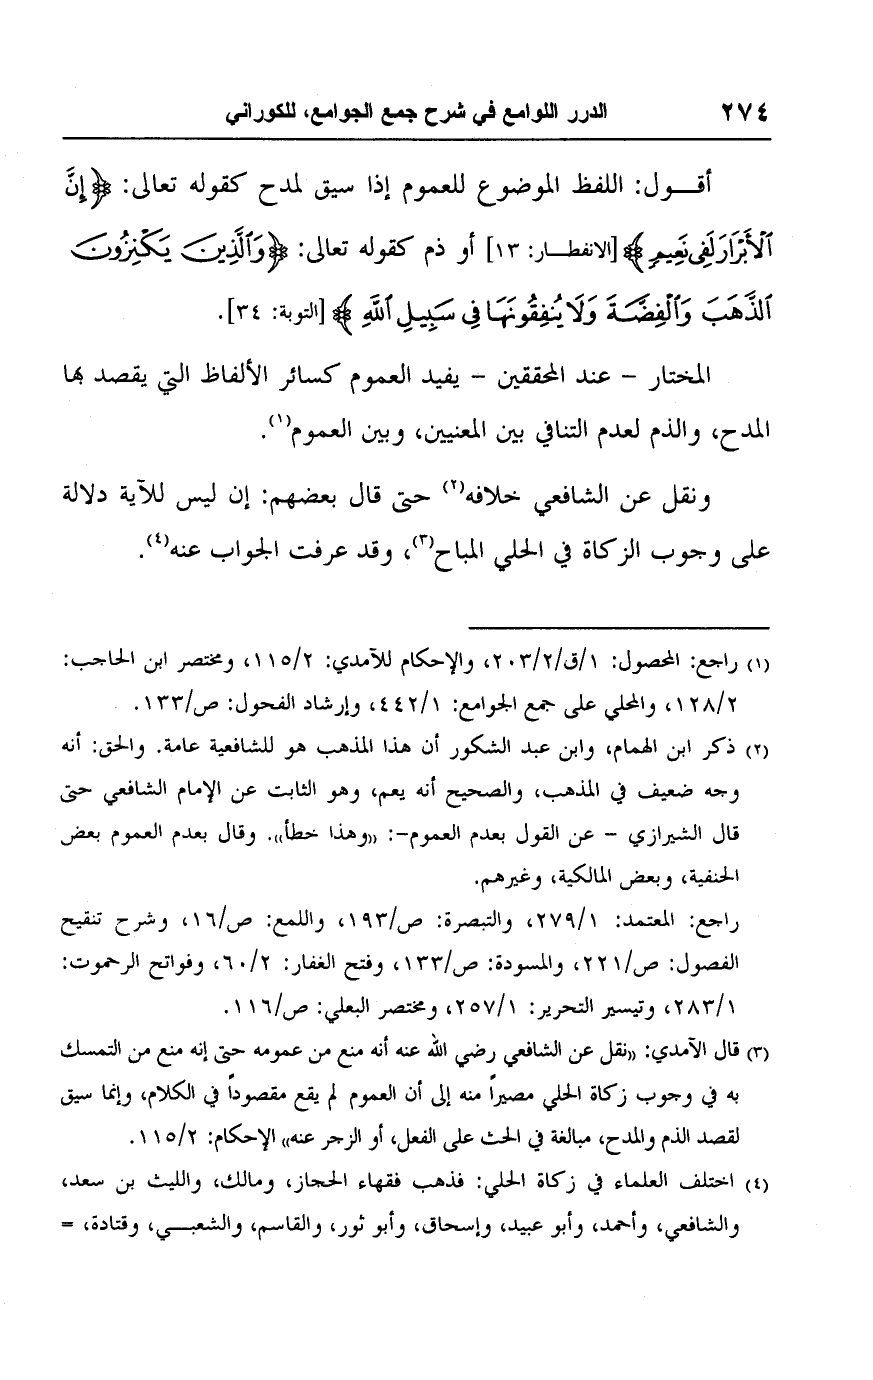 ٢٧٤ الدرر اللوامع في شرح جمع الجوامع، للكوراني
أقـــول: اللفظ الموضوع للعموم إذا سيق لمدح كقوله تعالى: ﴿إِنَّ
ٱلْأَبْرَارَ لَفِى نَعِيمٍ﴾ [الانفطـار: ١٣] أو ذم كقوله تعالى: ﴿وَٱلَّذِينَ يَكْنِزُونَ
ٱلذَّهَبَ وَٱلْفِضَّةَ وَلَا يُنفِقُونَهَا فِى سَبِيلِ ٱللَّهِ﴾ [التوبة: ٣٤].
المختار - عند المحققين - يفيد العموم كسائر الألفاظ التي يقصد بها
المدح، والذم لعدم التنافي بين المعنيين، وبين العموم(١).
ونقل عن الشافعي خلافه(٢) حتى قال بعضهم: إن ليس للآية دلالة
على وجوب الزكاة في الحلي المباح(٣)، وقد عرفت الجواب عنه(٤).
(١) راجع: المحصول: ١/ق/٢٠٣/٢، والإحكام للآمدي: ١١٥/٢، ومختصر ابن الحاجب:
١٢٨/٢، والمحلي على جمع الجوامع: ٤٤٢/١، وإرشاد الفحول: ص/١٣٣.
(٢) ذكر ابن الهمام، وابن عبد الشكور أن هذا المذهب هو للشافعية عامة. والحق: أنه
وجه ضعيف في المذهب، والصحيح أنه يعم، وهو الثابت عن الإمام الشافعي حتى
قال الشيرازي - عن القول بعدم العموم-: «وهذا خطأ». وقال بعدم العموم بعض
الحنفية، وبعض المالكية، وغيرهم.
راجع: المعتمد: ٢٧٩/١، والتبصرة: ص/١٩٣، واللمع: ص/١٦، وشرح تنقيح
الفصول: ص/٢٢١، والمسودة: ص/١٣٣، وفتح الغفار: ٦٠/٢، وفواتح الرحموت:
٢٨٣/١، وتيسير التحرير: ٢٥٧/١، ومختصر البعلي: ص/١١٦.
(٣) قال الآمدي: «نقل عن الشافعي رضي الله عنه أنه منع من عمومه حتى إنه منع من التمسك
به في وجوب زكاة الحلي مصيراً منه إلى أن العموم لم يقع مقصوداً في الكلام، وإنما سيق
لقصد الذم والمدح، مبالغة في الحث على الفعل، أو الزجر عنه» الإحكام: ١١٥/٢.
(٤) اختلف العلماء في زكاة الحلي: فذهب فقهاء الحجاز، ومالك، والليث بن سعد،
والشافعي، وأحمد، وأبو عبيد، وإسحاق، وأبو ثور، والقاسم، والشعبـــي، وقتادة، =